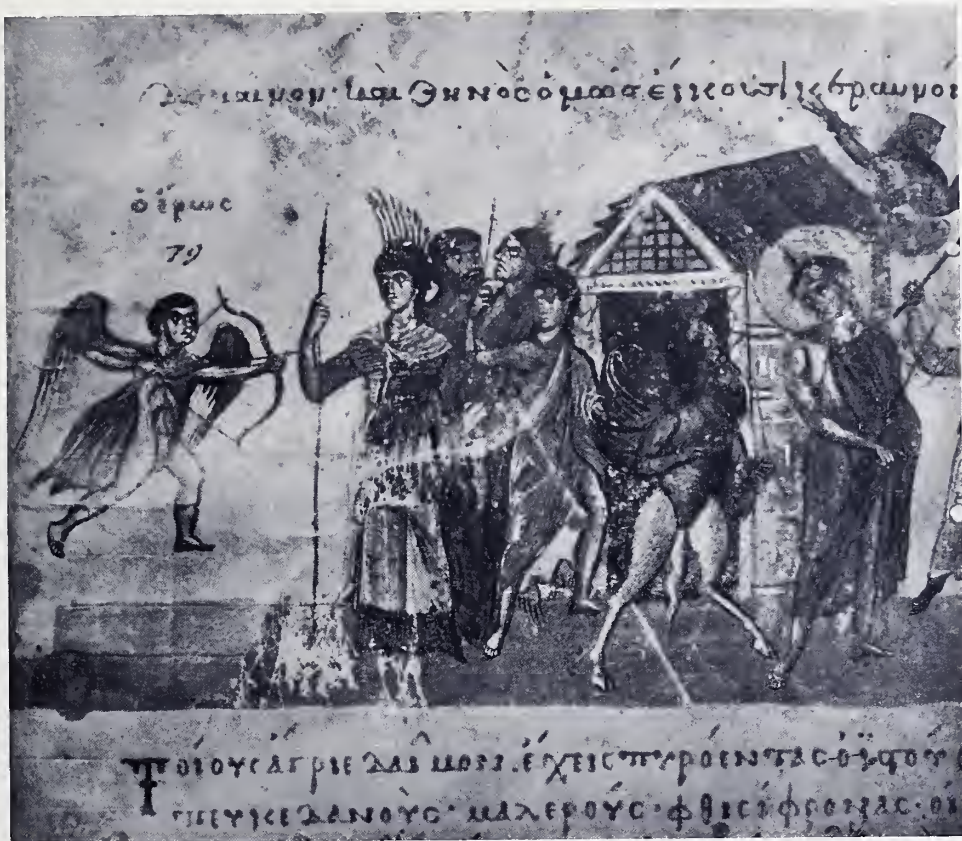 καὶ Ζηνὸς ὁμῶς
ὁ ἔρως
79
ποίους ἄγριε δαῖμον ἔχεις πυρόεντας
πευκεδανοὺς· μαλεροὺς· φθισίφρονας· οἰ